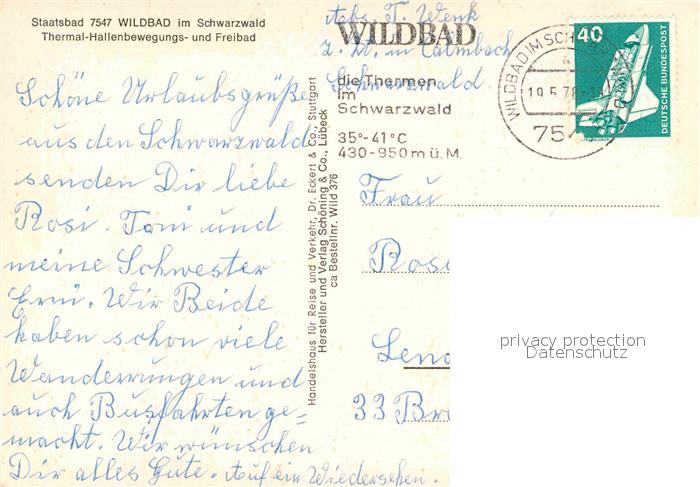 Staatsbad 7547 WILDBAD im Schwarzwald
Thermal-Hallenbewegungs- und Freibad
Schöne Urlaubsgrüße
aus den Schwarzwald
senden Dir liebe
Rosi. Toni und
meine Schwester
Erni. Wir Beide
haben schon viele
Wanderrungen und
auch Busfahrten ge-
macht. Wir wünschen
Dir alles Gute. Auf ein Wiedersehen.
Handelshaus für Reise und Verkehr, Dr. Eckert & Co., Stuttgart
Hersteller und Verlag Schöning & Co., Lübeck
ca Bestellnr. Wild 376
Abs. T. Wenk
z. Zt. in Calmbach
Schwarzwald.
WILDBAD
die Thermen
im
Schwarzwald
35°-41°C
430-950m ü. M.
WILDBAD IM SCH
a
19.5.78
75
40
DEUTSCHE BUNDESPOST
Frau
Rosi
33 Br
privacy protection
Datenschutz